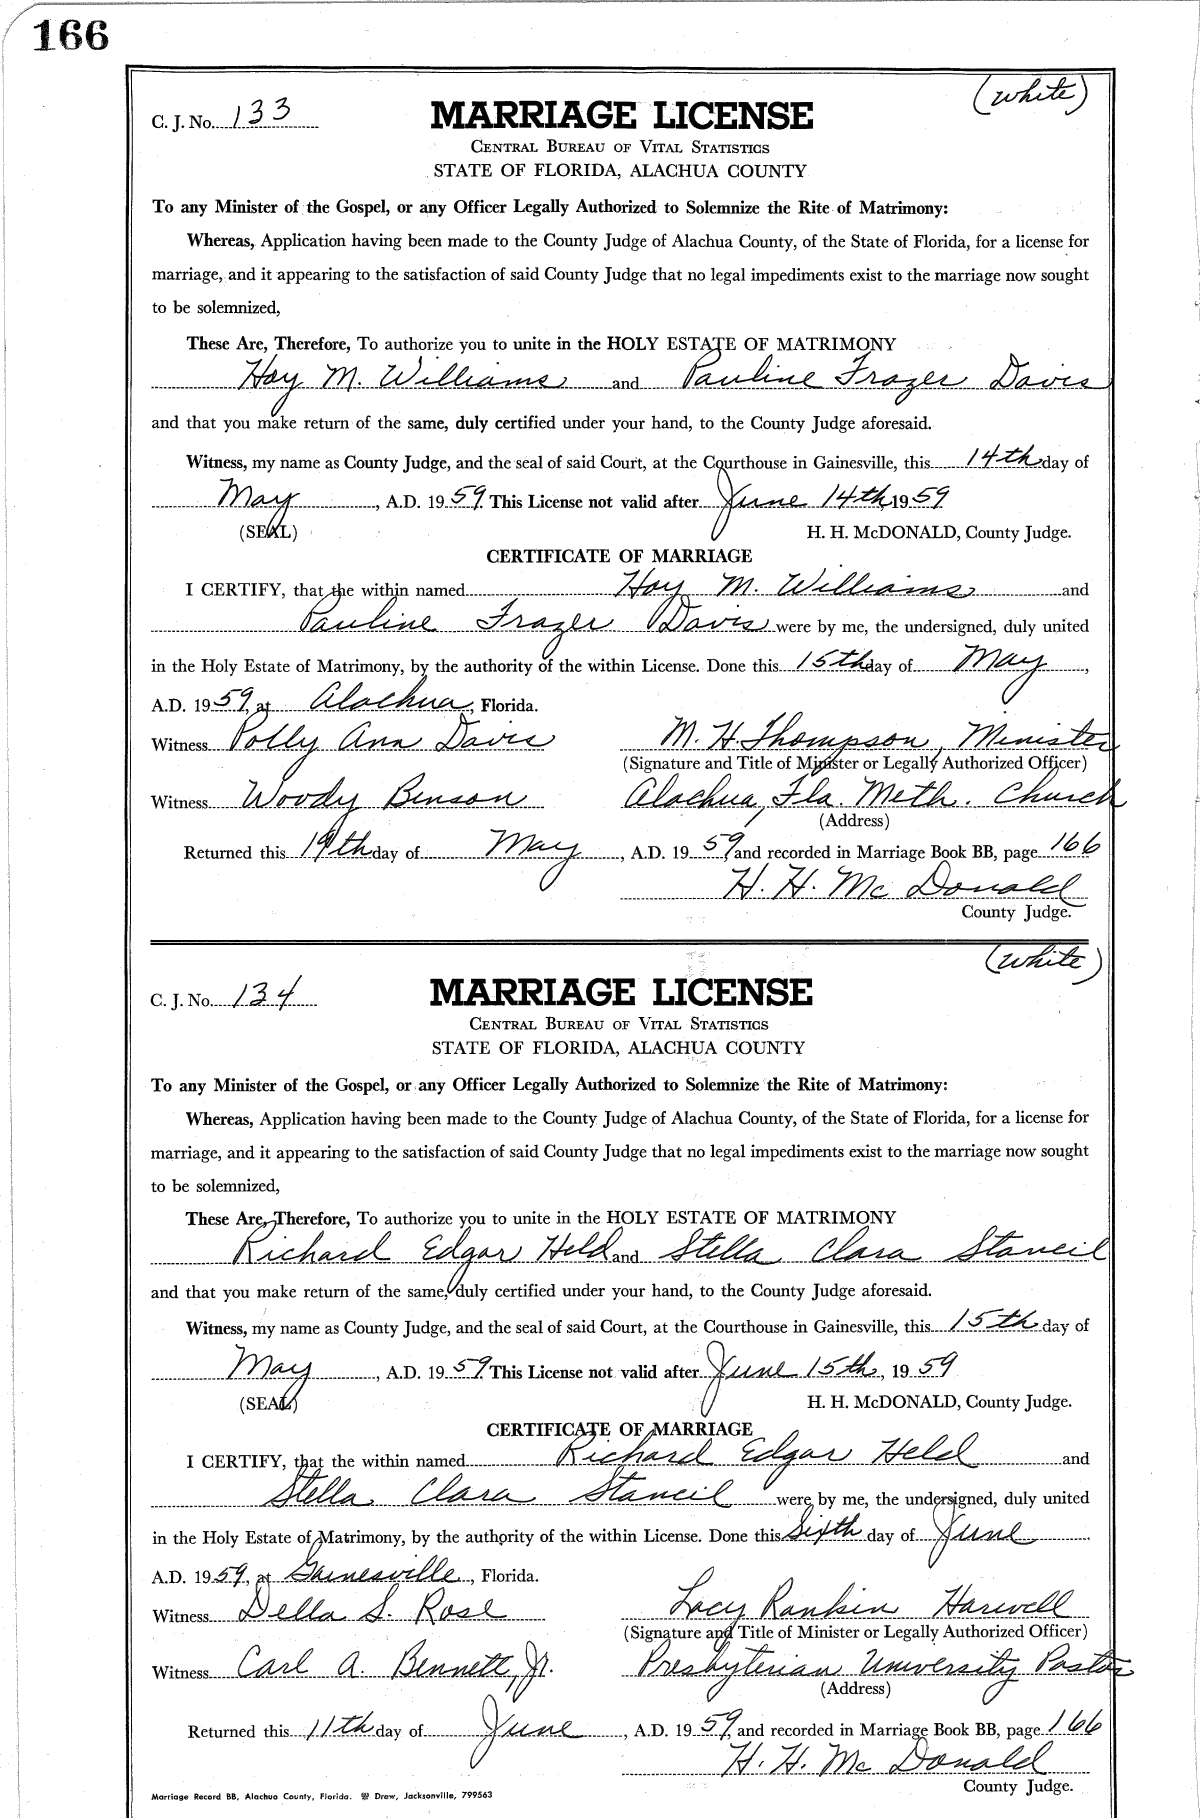 166
(White)
C. J. No. 133
MARRIAGE LICENSE
CENTRAL BUREAU OF VITAL STATISTICS
STATE OF FLORIDA, ALACHUA COUNTY
To any Minister of the Gospel, or any Officer Legally Authorized to Solemnize the Rite of Matrimony:
Whereas, Application having been made to the County Judge of Alachua County, of the State of Florida, for a license for
marriage, and it appearing to the satisfaction of said County Judge that no legal impediments exist to the marriage now sought
to be solemnized,
These Are, Therefore, To authorize you to unite in the HOLY ESTATE OF MATRIMONY
Hoy M. Williams and Pauline Frazer Davis
and that you make return of the same, duly certified under your hand, to the County Judge aforesaid.
Witness, my name as County Judge, and the seal of said Court, at the Courthouse in Gainesville, this 14th day of
May, A.D. 1959. This License not valid after June 14th 1959
(SEAL) H. H. McDONALD, County Judge.
CERTIFICATE OF MARRIAGE
I CERTIFY, that the within named Hoy M. Williams and
Pauline Frazer Davis were by me, the undersigned, duly united
in the Holy Estate of Matrimony, by the authority of the within License. Done this 15th day of May,
A.D. 1959, at Alachua, Florida.
Witness Polly Ann Davis M. H. Thompson, Minister
(Signature and Title of Minister or Legally Authorized Officer)
Witness Woody Benson Alachua, Fla. Meth. Church
(Address)
Returned this 19th day of May, A.D. 1959, and recorded in Marriage Book BB, page 166
H. H. McDonald
County Judge.
(White)
C. J. No. 134
MARRIAGE LICENSE
CENTRAL BUREAU OF VITAL STATISTICS
STATE OF FLORIDA, ALACHUA COUNTY
To any Minister of the Gospel, or any Officer Legally Authorized to Solemnize the Rite of Matrimony:
Whereas, Application having been made to the County Judge of Alachua County, of the State of Florida, for a license for
marriage, and it appearing to the satisfaction of said County Judge that no legal impediments exist to the marriage now sought
to be solemnized,
These Are, Therefore, To authorize you to unite in the HOLY ESTATE OF MATRIMONY
Richard Edgar Held and Stella Clara Stancil
and that you make return of the same, duly certified under your hand, to the County Judge aforesaid.
Witness, my name as County Judge, and the seal of said Court, at the Courthouse in Gainesville, this 15th day of
May, A.D. 1959. This License not valid after June 15th, 1959
(SEAL) H. H. McDONALD, County Judge.
CERTIFICATE OF MARRIAGE
I CERTIFY, that the within named Richard Edgar Held and
Stella Clara Stancil were by me, the undersigned, duly united
in the Holy Estate of Matrimony, by the authority of the within License. Done this Sixth day of June
A.D. 1959, at Gainesville, Florida.
Witness Della S. Rose Lacy Rankin Harwell
(Signature and Title of Minister or Legally Authorized Officer)
Witness Carl A. Bennett, Jr. Presbyterian University Pastor
(Address)
Returned this 11th day of June, A.D. 1959, and recorded in Marriage Book BB, page 166
H. H. McDonald
County Judge.
Marriage Record BB, Alachua County, Florida. Drew, Jacksonville, 799563